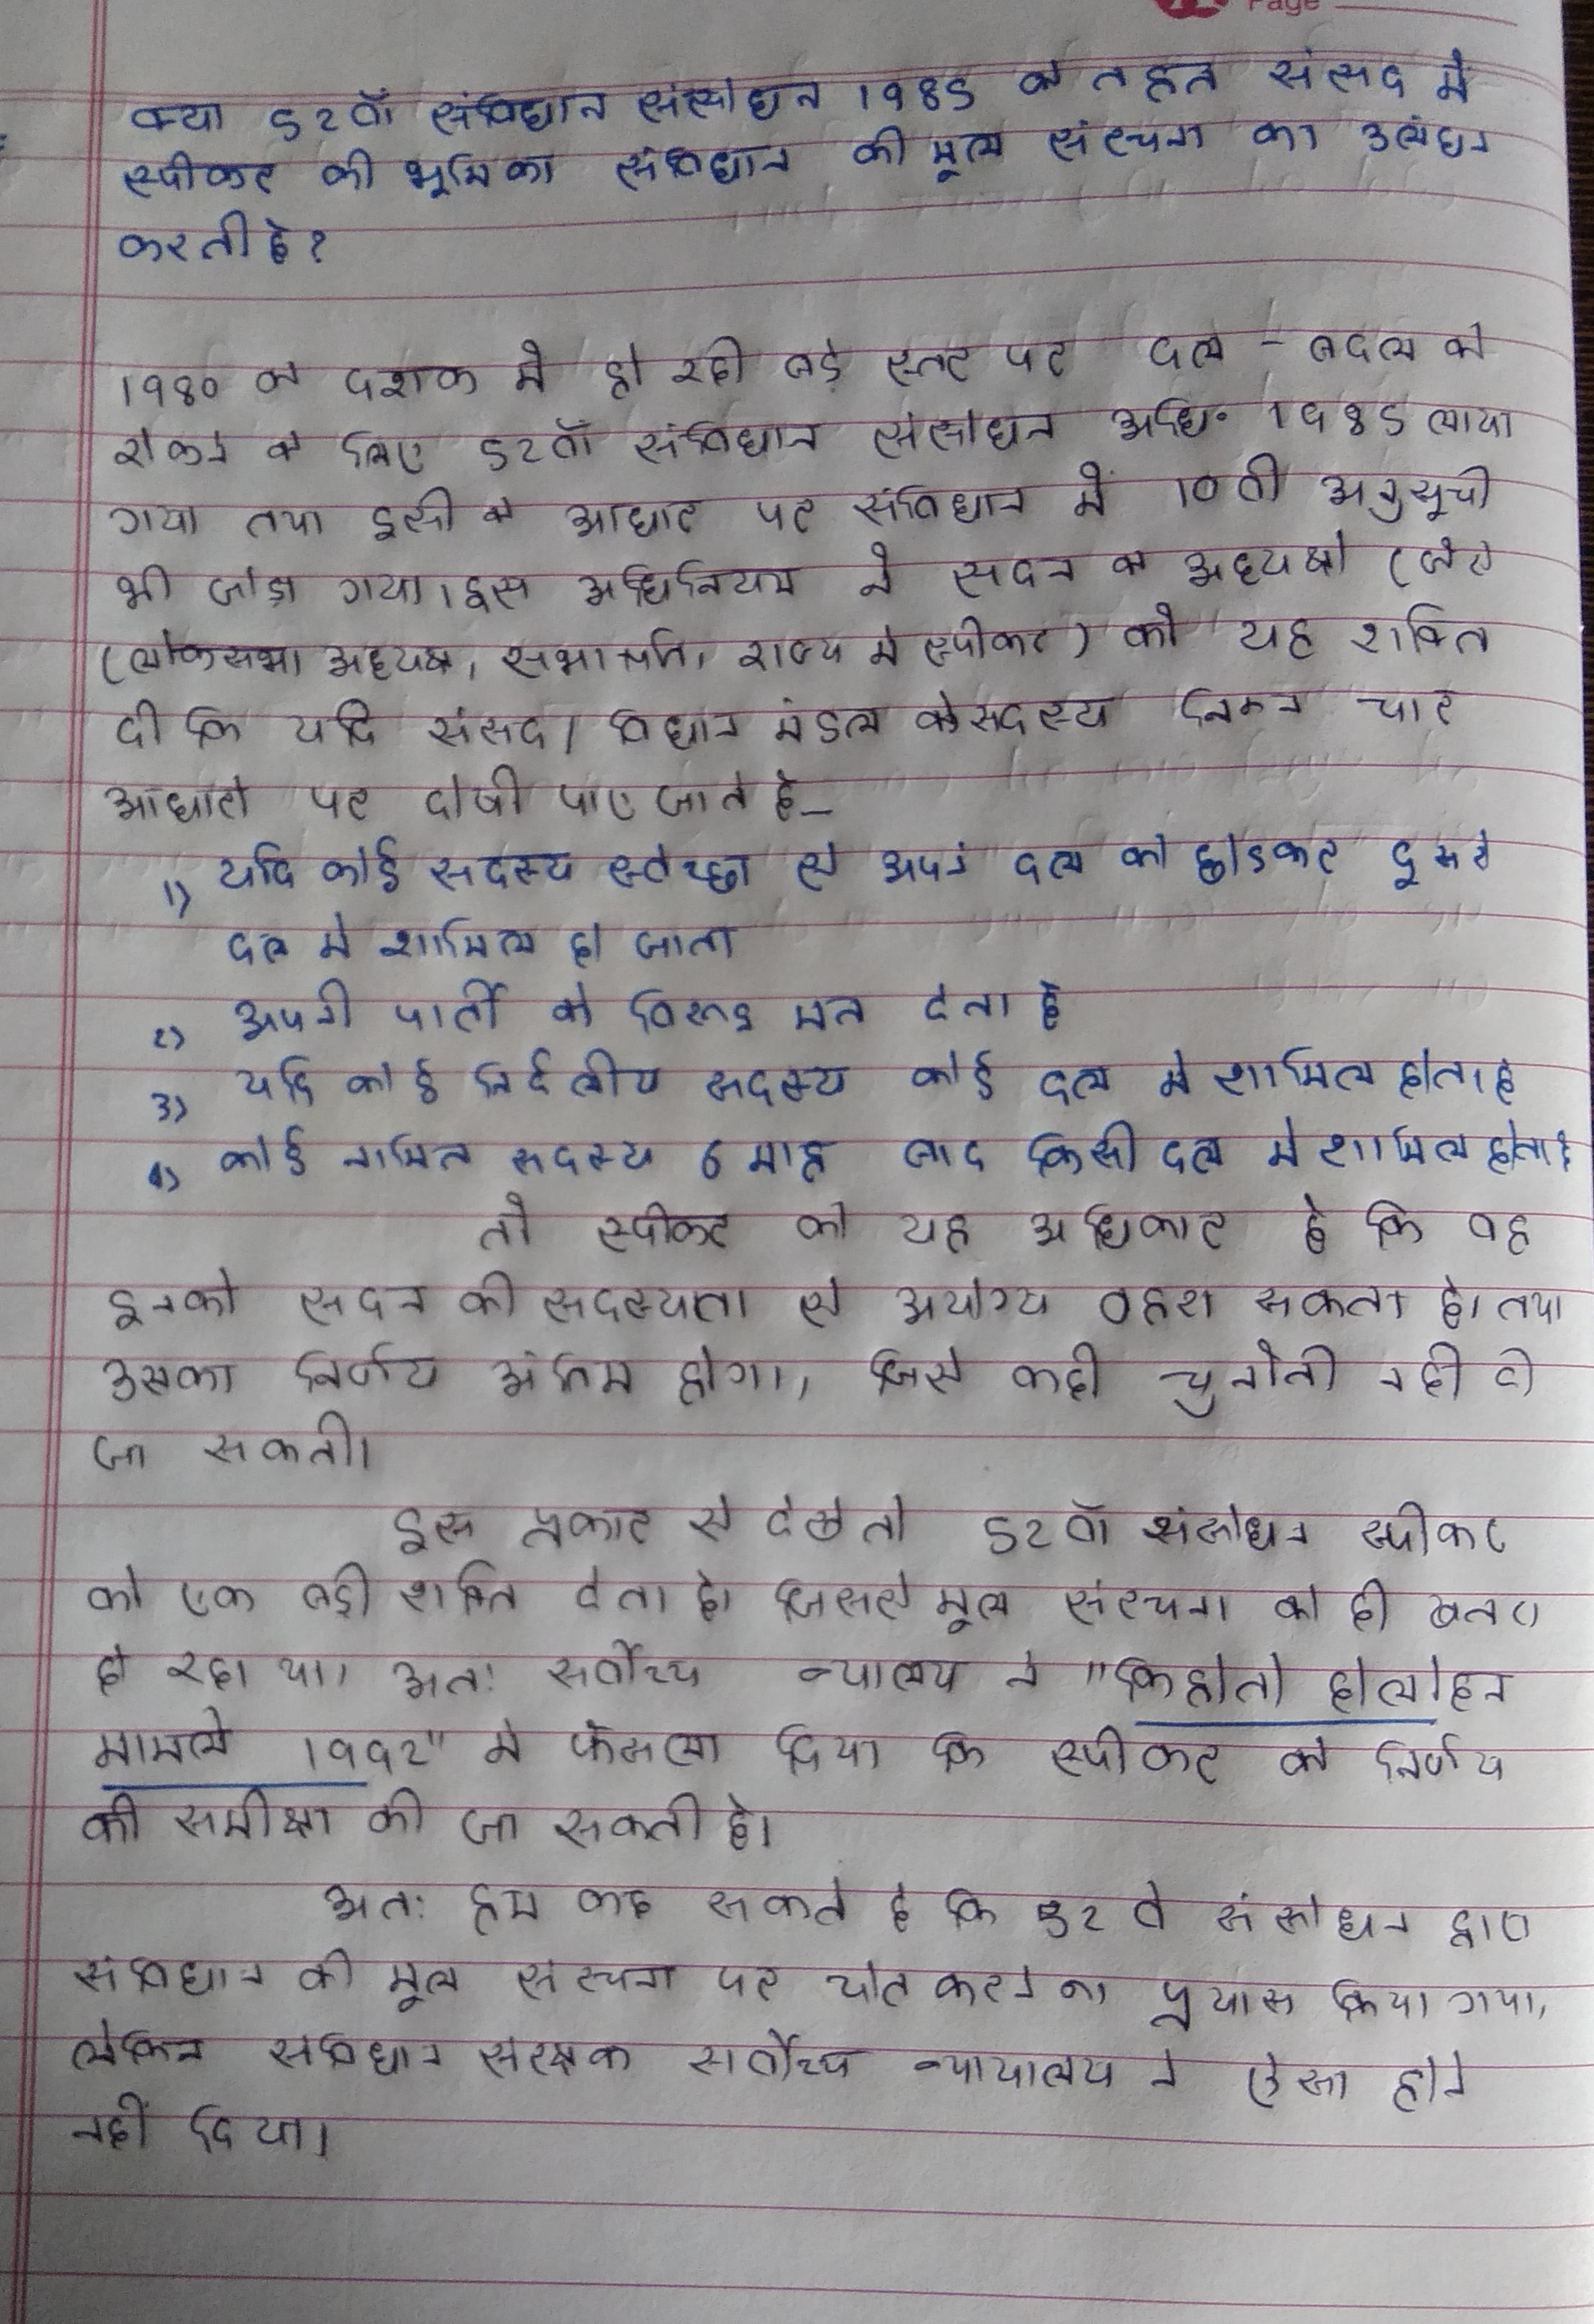 Page
क्या 52वाँ संविधान संसोधन 1985 के तहत संसद में
स्पीकर की भूमिका संविधान की मूल संरचना का उलंघन
करती है?
1980 के दशक में हो रही बड़े स्तर पर दल - बदल को
रोकने के लिए 52वाँ संविधान संसोधन अधि॰ 1985 लाया
गया तथा इसी के आधार पर संविधान में 10वी अनुसूची
भी जोड़ा गया। इस अधिनियम ने सदन के अध्यक्षो (जैसे
(लोकसभा अध्यक्ष, सभापति, राज्य मे स्पीकर) को यह शक्ति
दी कि यदि संसद / विधान मंडल के सदस्य निम्न चार
आधारो पर दोषी पाए जाते है_
1) यदि कोई सदस्य स्वेच्छा से अपने दल को छोडकर दूसरे
दल मे शामिल हो जाता
2) अपनी पार्टी के विरूद्ध मत देता है
3) यदि कोई निर्दलीय सदस्य कोई दल मे शामिल होता है
4) कोई नामित सदस्य 6 माह बाद किसी दल मे शामिल होता है
तो स्पीकर को यह अधिकार है कि वह
इनको सदन की सदस्यता से अयोग्य ठहरा सकता है। तथा
उसका निर्णय अंतिम होगा, जिसे कही चुनोती नही दी
जा सकती।
इस प्रकार से देखे तो 52वाँ संसोधन स्पीकर
को एक बड़ी शक्ति देता है। जिससे मूल संरचना को ही खतरा
हो रहा था। अतः सर्वोच्च न्यालय ने "किहोतो होलोहन
मामले 1992" मे फैसला दिया कि स्पीकर के निर्णय
की समीक्षा की जा सकती है।
अतः हम कह सकते है कि 52 वे संसोधन द्वारा
संविधान की मूल संरचना पर चोट करने का प्रयास किया गया,
लेकिन संविधान संरक्षक सर्वोच्च न्यायालय ने ऐसा होने
नहीं दिया।